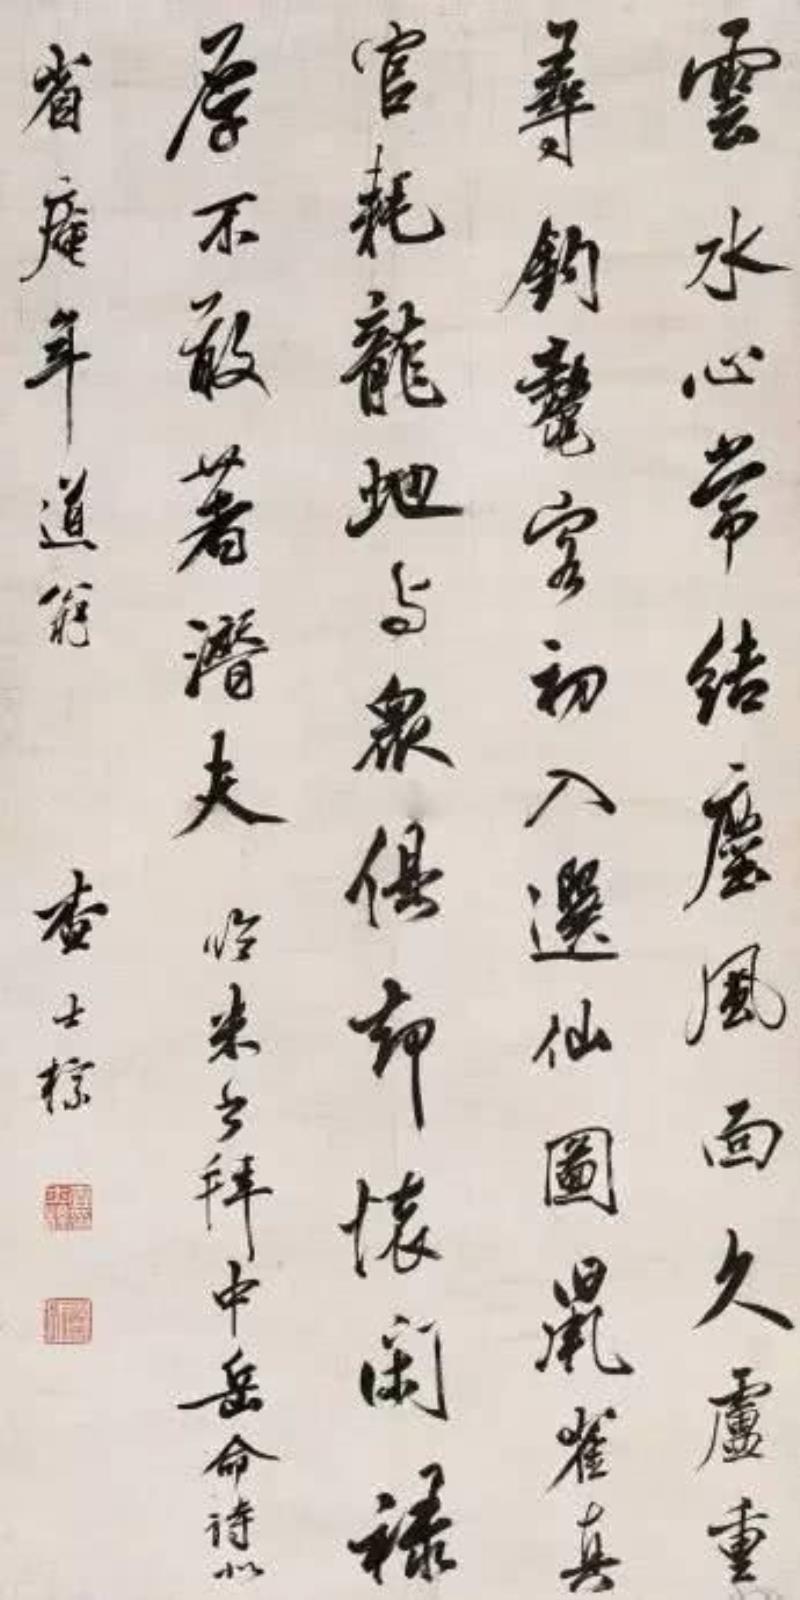 雲水心常結塵風面久盧重
尋釣鼇客初入選仙圖鼠雀真
官耗龍虵与衆俱却懷閑祿
厚不敢著潛夫 臨米書拜中岳命詩似
省庵年道翁 查士標